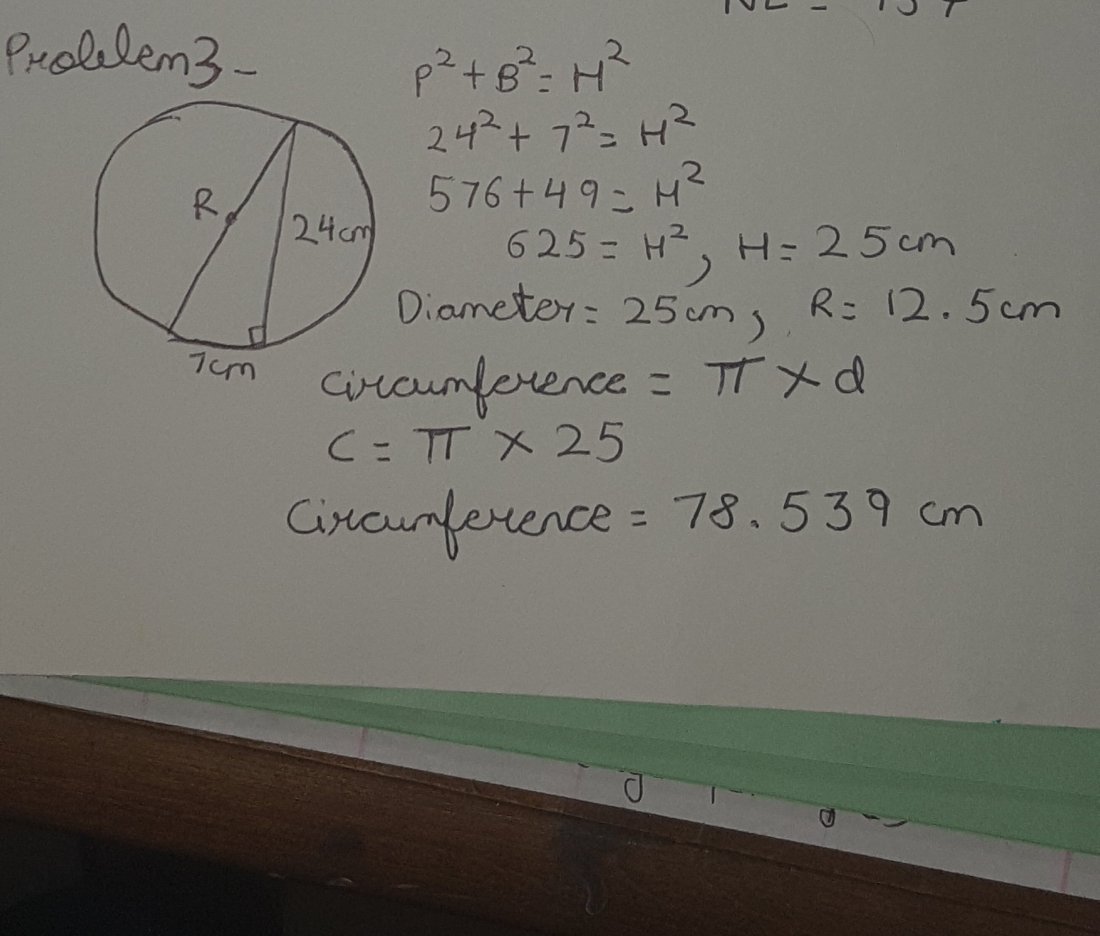 Problem 3 -
P² + B² = H²
24² + 7² = H²
576 + 49 = H²
625 = H², H = 25 cm
Diameter = 25 cm, R = 12.5 cm
R
24 cm
7 cm
circumference = π × d
C = π × 25
Circumference = 78.539 cm